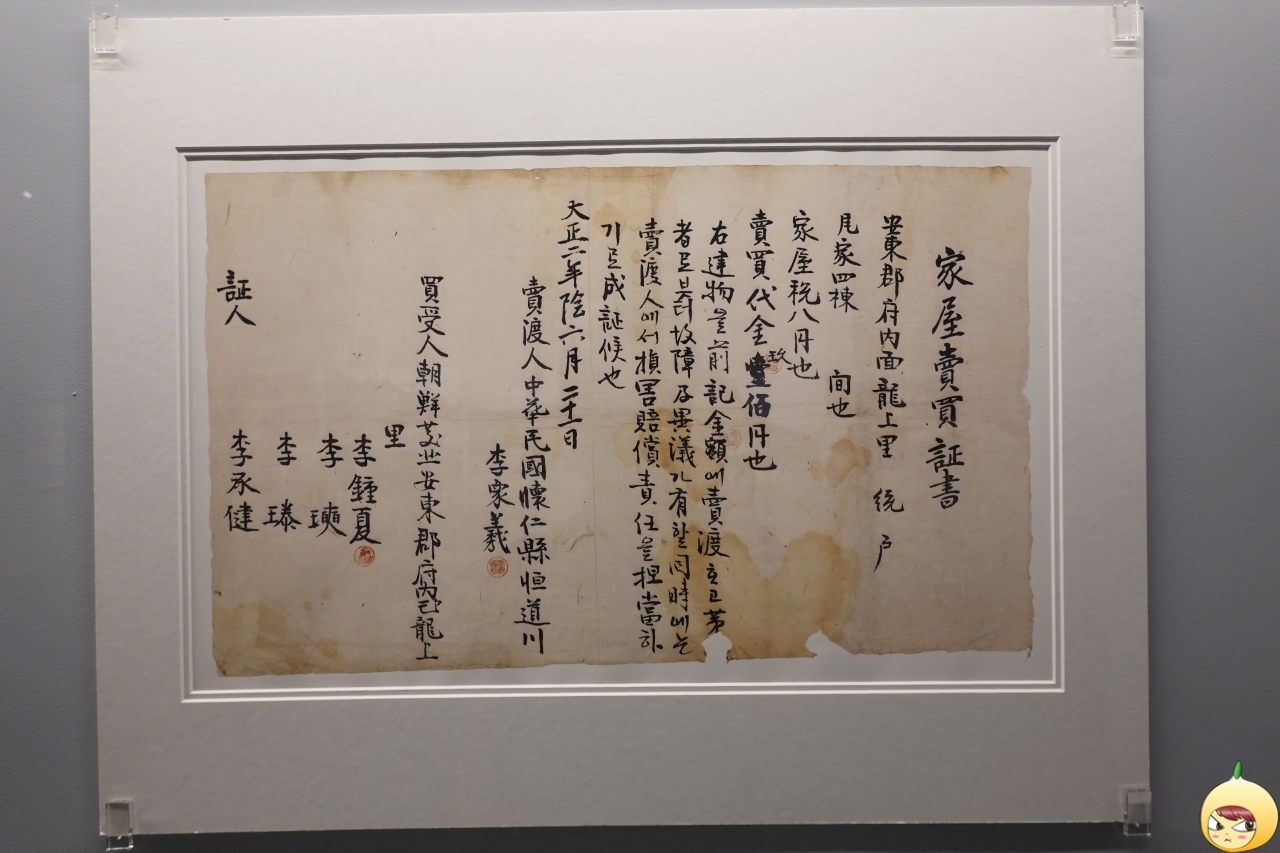 家屋賣買証書
安東郡府內面龍上里 統 戶
瓦家四棟 間也
家屋稅八円也
賣買代金壹佰円也
右建物을前記金額에賣渡하고第
者로브터故障及異議가有할同時에는
賣渡人에서損害賠償責任을担當하
기로成証候也
大正二年陰六月二十一日
賣渡人中華民國懷仁縣恒道川
李家義
買受人朝鮮慶北安東郡府內面龍上
里
李鍾夏
李
李
李承健
証人